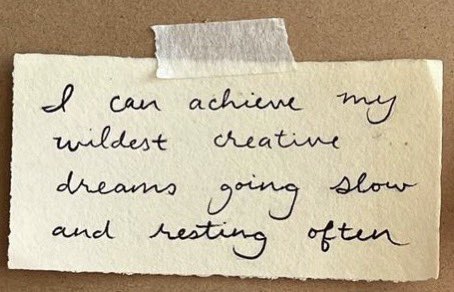 I can achieve my
wildest creative
dreams going slow
and resting often